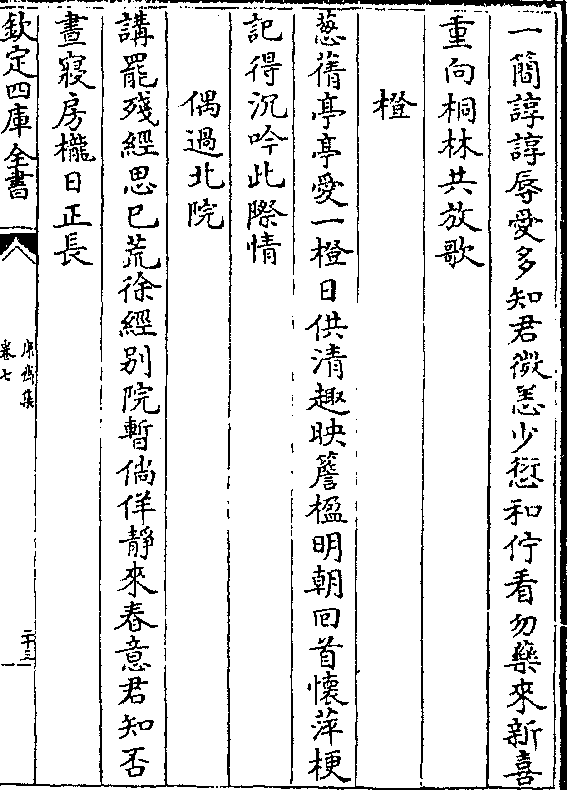 一簡諄諄辱愛多知君微恙少愆和佇看勿藥來新喜
重向桐林共放歌
橙
葱蒨亭亭愛一橙日供清趣映簷楹明朝回首懷萍梗
記得沉吟此際情
偶過北院
講罷殘經思已荒徐經别院暫倘佯靜來春意君知否
晝寢房櫳日正長
欽定四庫全書
卷七
二十三